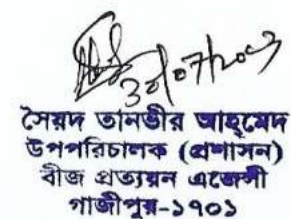 30/07/2023
সৈয়দ তানভীর আহমেদ
উপপরিচালক (প্রশাসন)
বীজ প্রত্যয়ন এজেন্সী
গাজীপুর-১৭০১